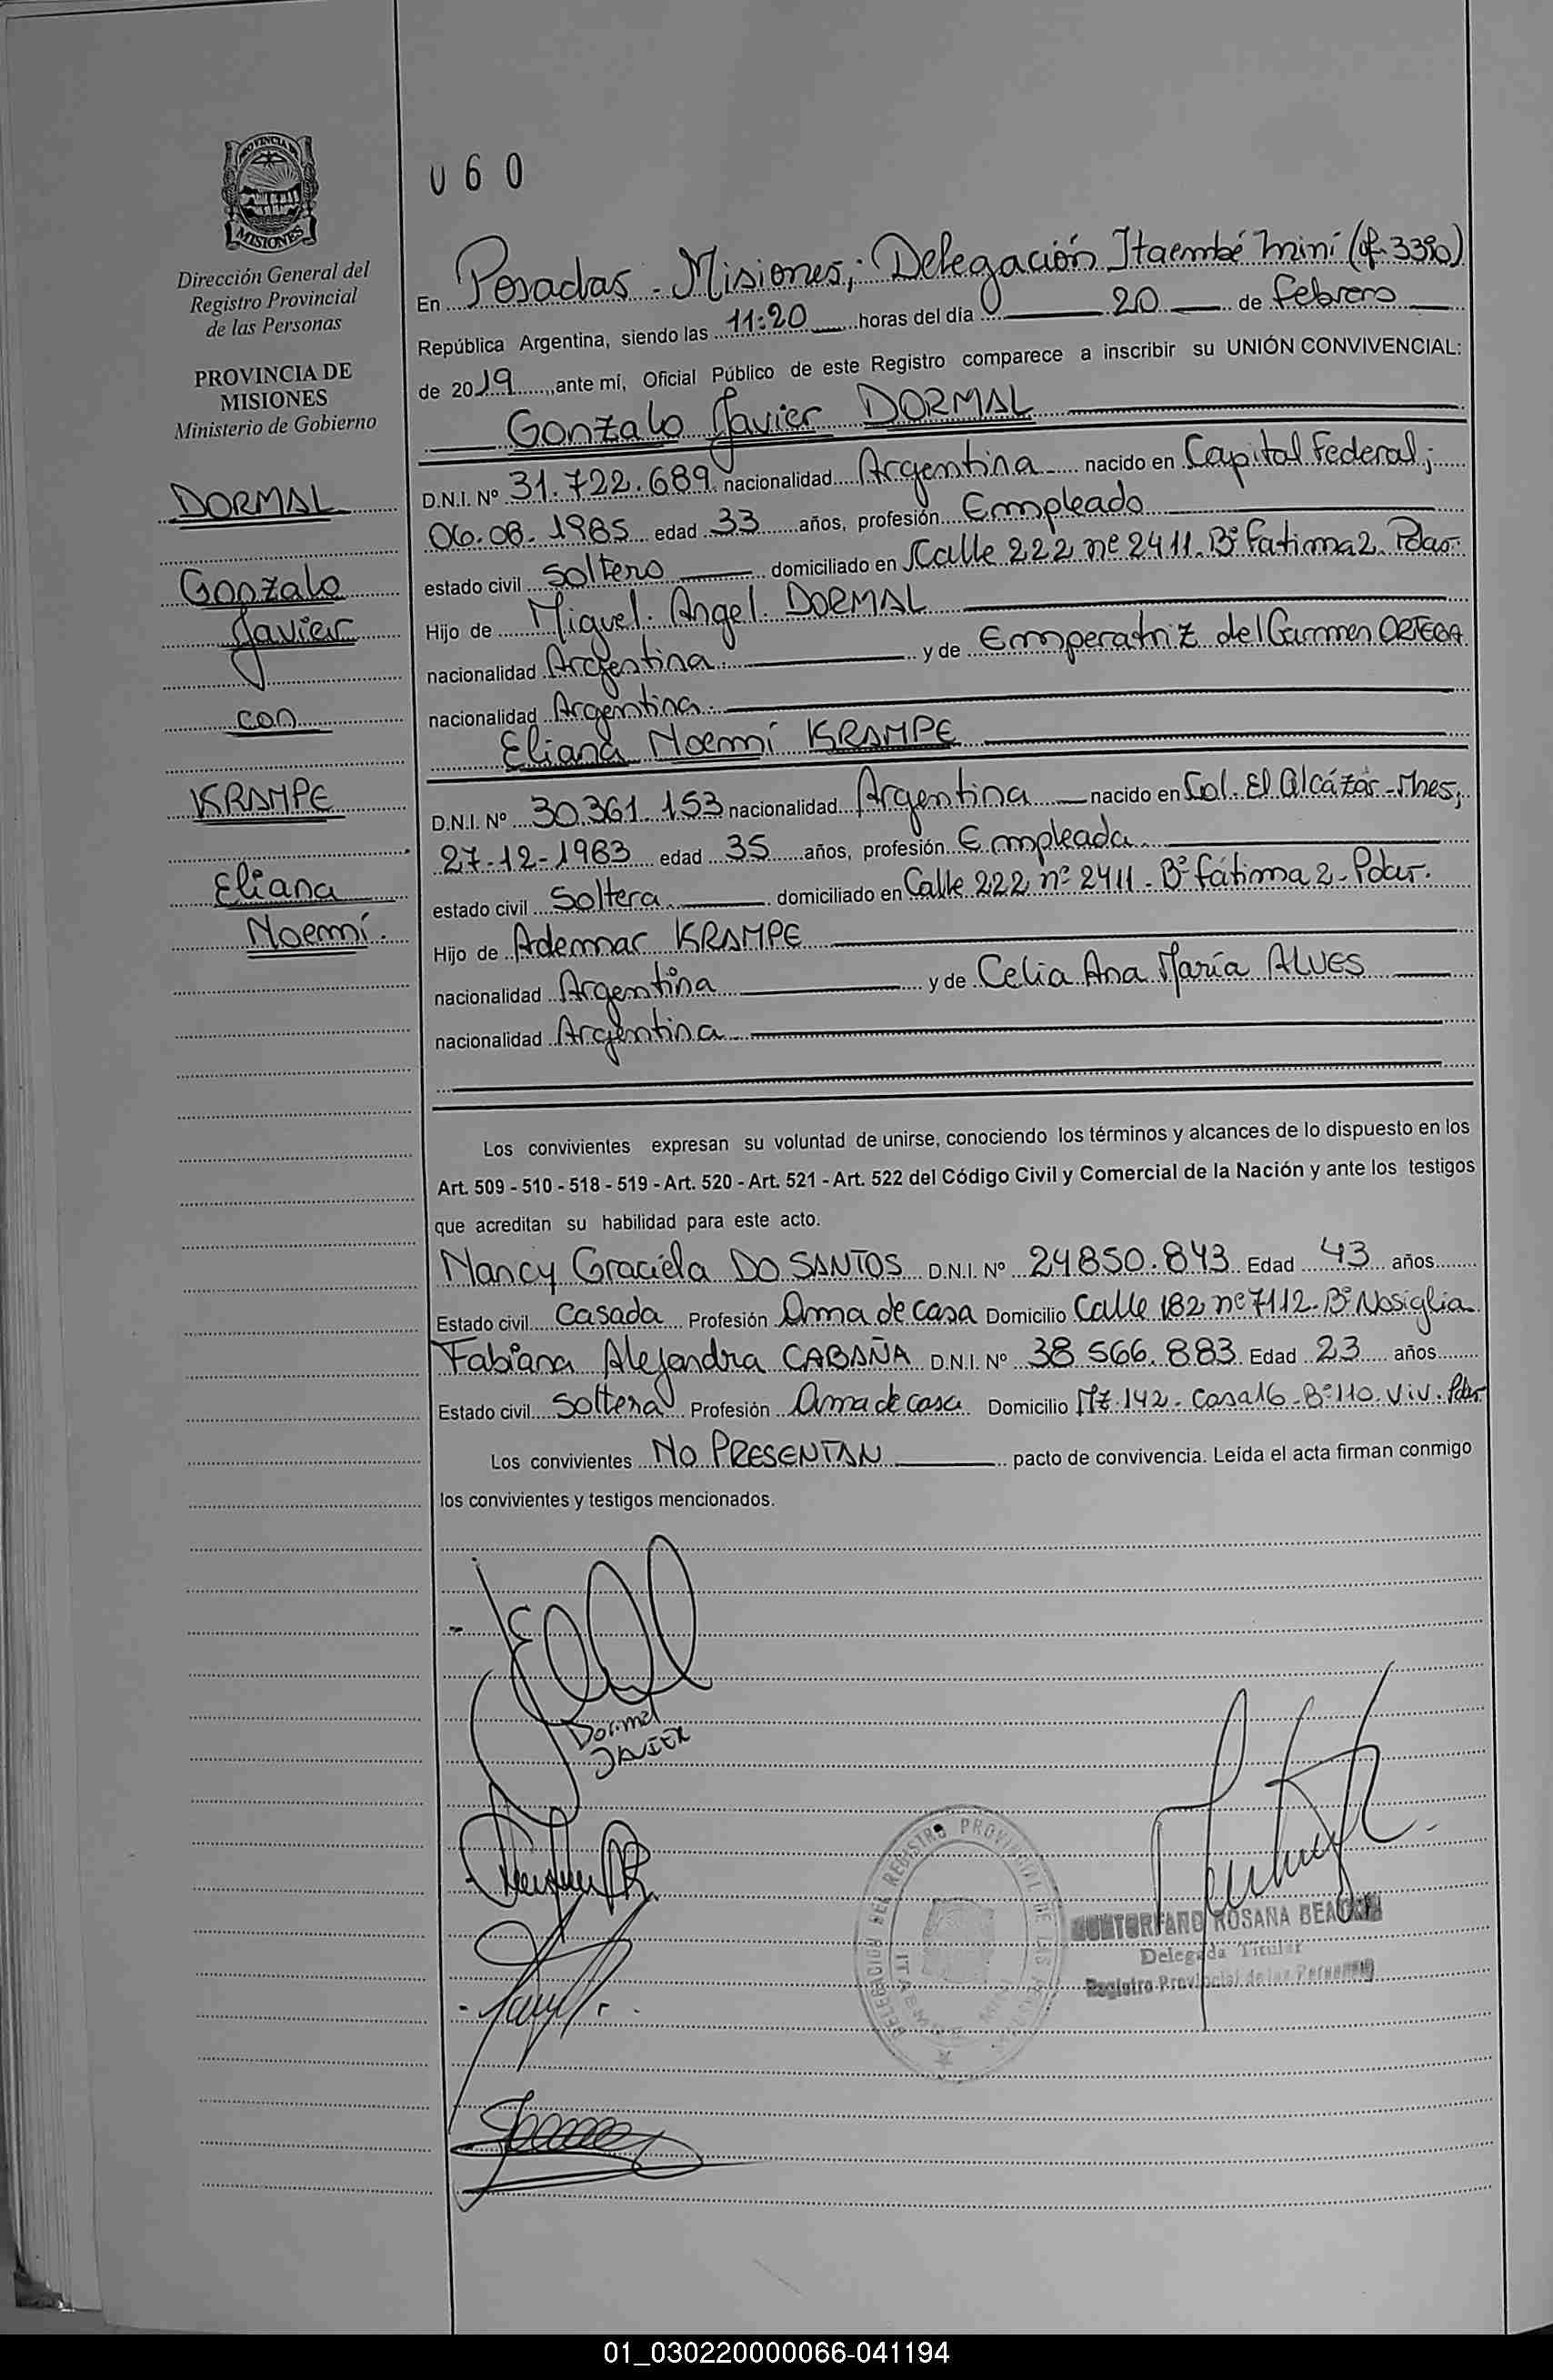 PROVINCIA DE
MISIONES
Dirección General del
Registro Provincial
de las Personas
PROVINCIA DE
MISIONES
Ministerio de Gobierno
DORMAL
Gonzalo
Javier
con
KRAMPE
Eliana
Noemí.
060
En Posadas - Misiones; Delegación Itaembé Miní (of. 3390)
República Argentina, siendo las 11:20 horas del día 20 de febrero
de 2019, ante mí, Oficial Público de este Registro comparece a inscribir su UNIÓN CONVIVENCIAL:
Gonzalo Javier DORMAL
D.N.I. Nº 31.722.689 nacionalidad Argentina nacido en Capital Federal;
06.08.1985 edad 33 años, profesión Empleado
estado civil Soltero domiciliado en Calle 222 nº 2411. Bº Fatima 2. Pdas.
Hijo de Miguel Angel DORMAL
nacionalidad Argentina. y de Emperatriz del Carmen ORTEGA
nacionalidad Argentina.
Eliana Noemí KRAMPE
D.N.I. Nº 30.361.153 nacionalidad Argentina nacido en Col. El Alcázar - Mnes;
27-12-1983 edad 35 años, profesión Empleada.
estado civil Soltera. domiciliado en Calle 222 nº 2411 - Bº Fátima 2 - Pdas.
Hijo de Ademar KRAMPE
nacionalidad Argentina y de Celia Ana María ALVES
nacionalidad Argentina
Los convivientes expresan su voluntad de unirse, conociendo los términos y alcances de lo dispuesto en los
Art. 509 - 510 - 518 - 519 - Art. 520 - Art. 521 - Art. 522 del Código Civil y Comercial de la Nación y ante los testigos
que acreditan su habilidad para este acto.
Nancy Graciela DO SANTOS D.N.I. Nº 24850.843 Edad 43 años
Estado civil Casada Profesión Ama de casa Domicilio Calle 182 nº 7112 - Bº Nosiglia
Fabiana Alejandra CABAÑA D.N.I. Nº 38 566.883 Edad 23 años
Estado civil Soltera Profesión Ama de casa Domicilio Mz. 142 - Casa 16 - Bº 110 Viv. Pdas
Los convivientes NO PRESENTAN pacto de convivencia. Leída el acta firman conmigo
los convivientes y testigos mencionados.
Dormal
JAVIER
DELEGACION DEL REGISTRO PROVINCIAL DE LAS
ITAEMBE MINI
ROSANA BEATRIZ
Delegada Titular
Registro Provincial de las Personas
01_030220000066-041194